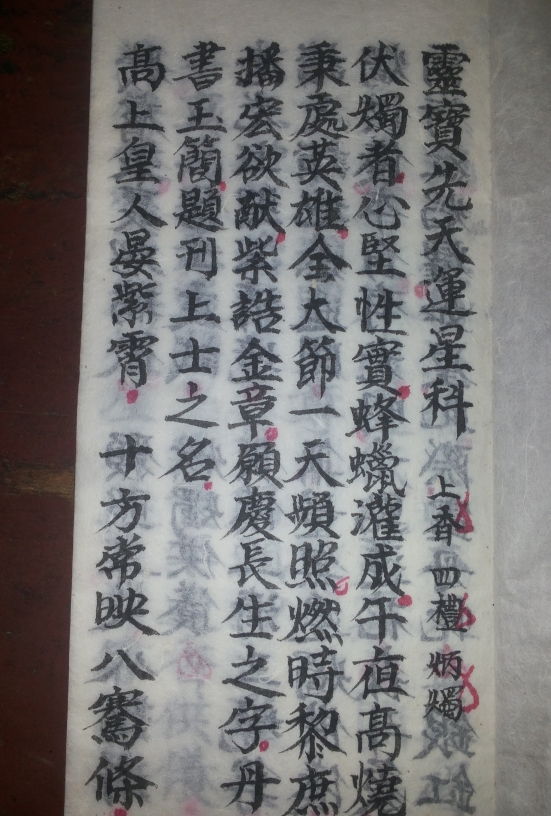 靈寶先天運星科 上香 四禮 炳燭
伏燭者心堅性實蜂蠟灌成午夜高燒
秉處英雄全大節一天頻照燃時黎庶
播宏欲猷紫誥金章願慶長生之字丹
書玉簡題刊上士之名
高上皇人晏紫霄 十方常映八騫條